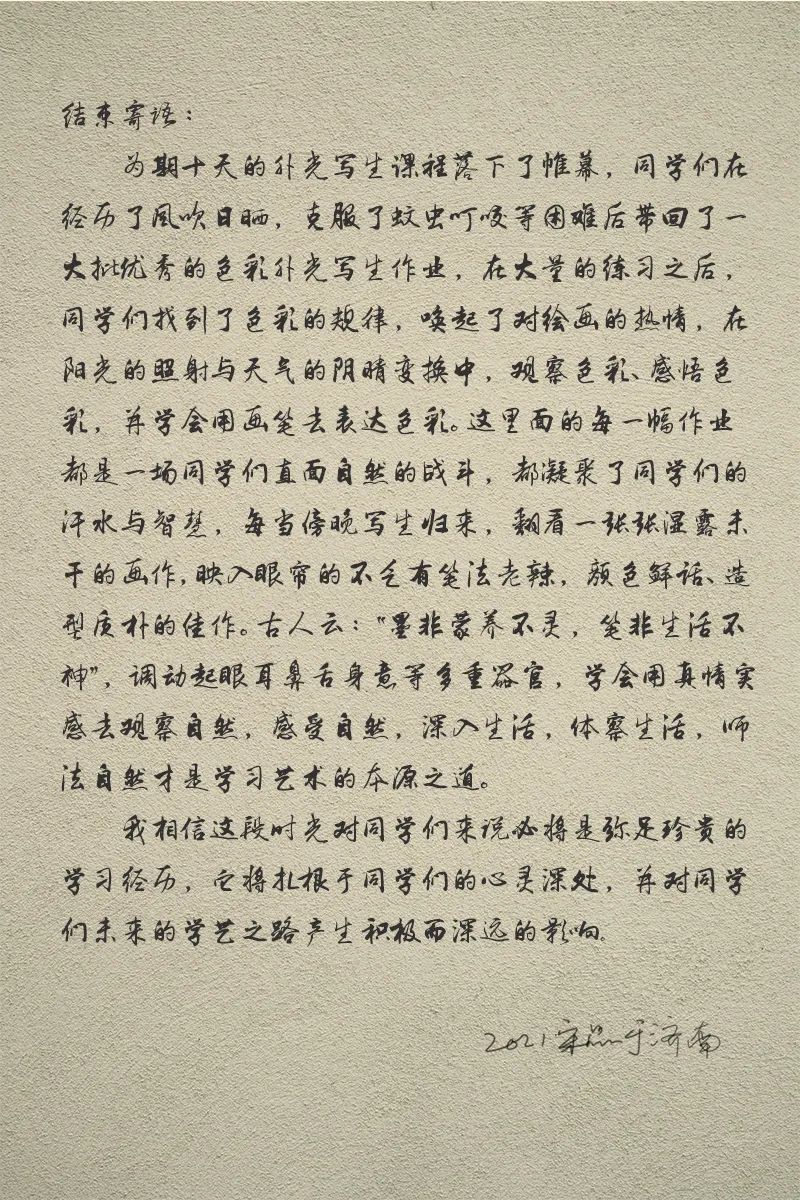 结束寄语：
为期十天的外光写生课程落下了帷幕，同学们在
经历了风吹日晒，克服了蚊虫叮咬等困难后带回了一
大批优秀的色彩外光写生作业，在大量的练习之后，
同学们找到了色彩的规律，唤起了对绘画的热情，在
阳光的照射与天气的阴晴变换中，观察色彩、感悟色
彩，并学会用画笔去表达色彩。这里面的每一幅作业
都是一场同学们直面自然的战斗，都凝聚了同学们的
汗水与智慧，每当傍晚写生归来，翻看一张张湿露未
干的画作，映入眼帘的不乏有笔法老辣，颜色鲜话、造
型质朴的佳作。古人云：“墨非蒙养不灵，笔非生活不
神”，调动起眼耳鼻舌身意等多重器官，学会用真情实
感去观察自然，感受自然，深入生活，体察生活，师
法自然才是学习艺术的本源之道。
我相信这段时光对同学们来说必将是弥足珍贵的
学习经历，它将扎根于同学们的心灵深处，并对同学
们未来的学艺之路产生积极而深远的影响。
2021宋磊于济南